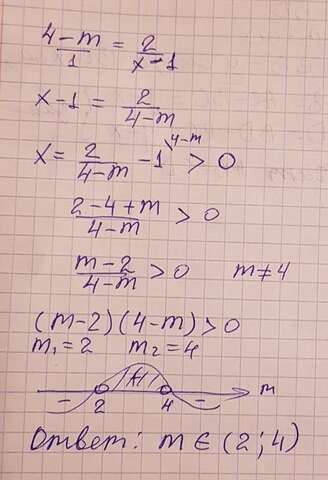 4-m/1 = 2/x-1
x-1 = 2/4-m
x = 2/4-m - 1 \4-m > 0
2-4+m/4-m > 0
m-2/4-m > 0 m≠4
(m-2)(4-m)>0
m₁=2 m₂=4
- + - m
2 4
Ответ: m∈(2;4)